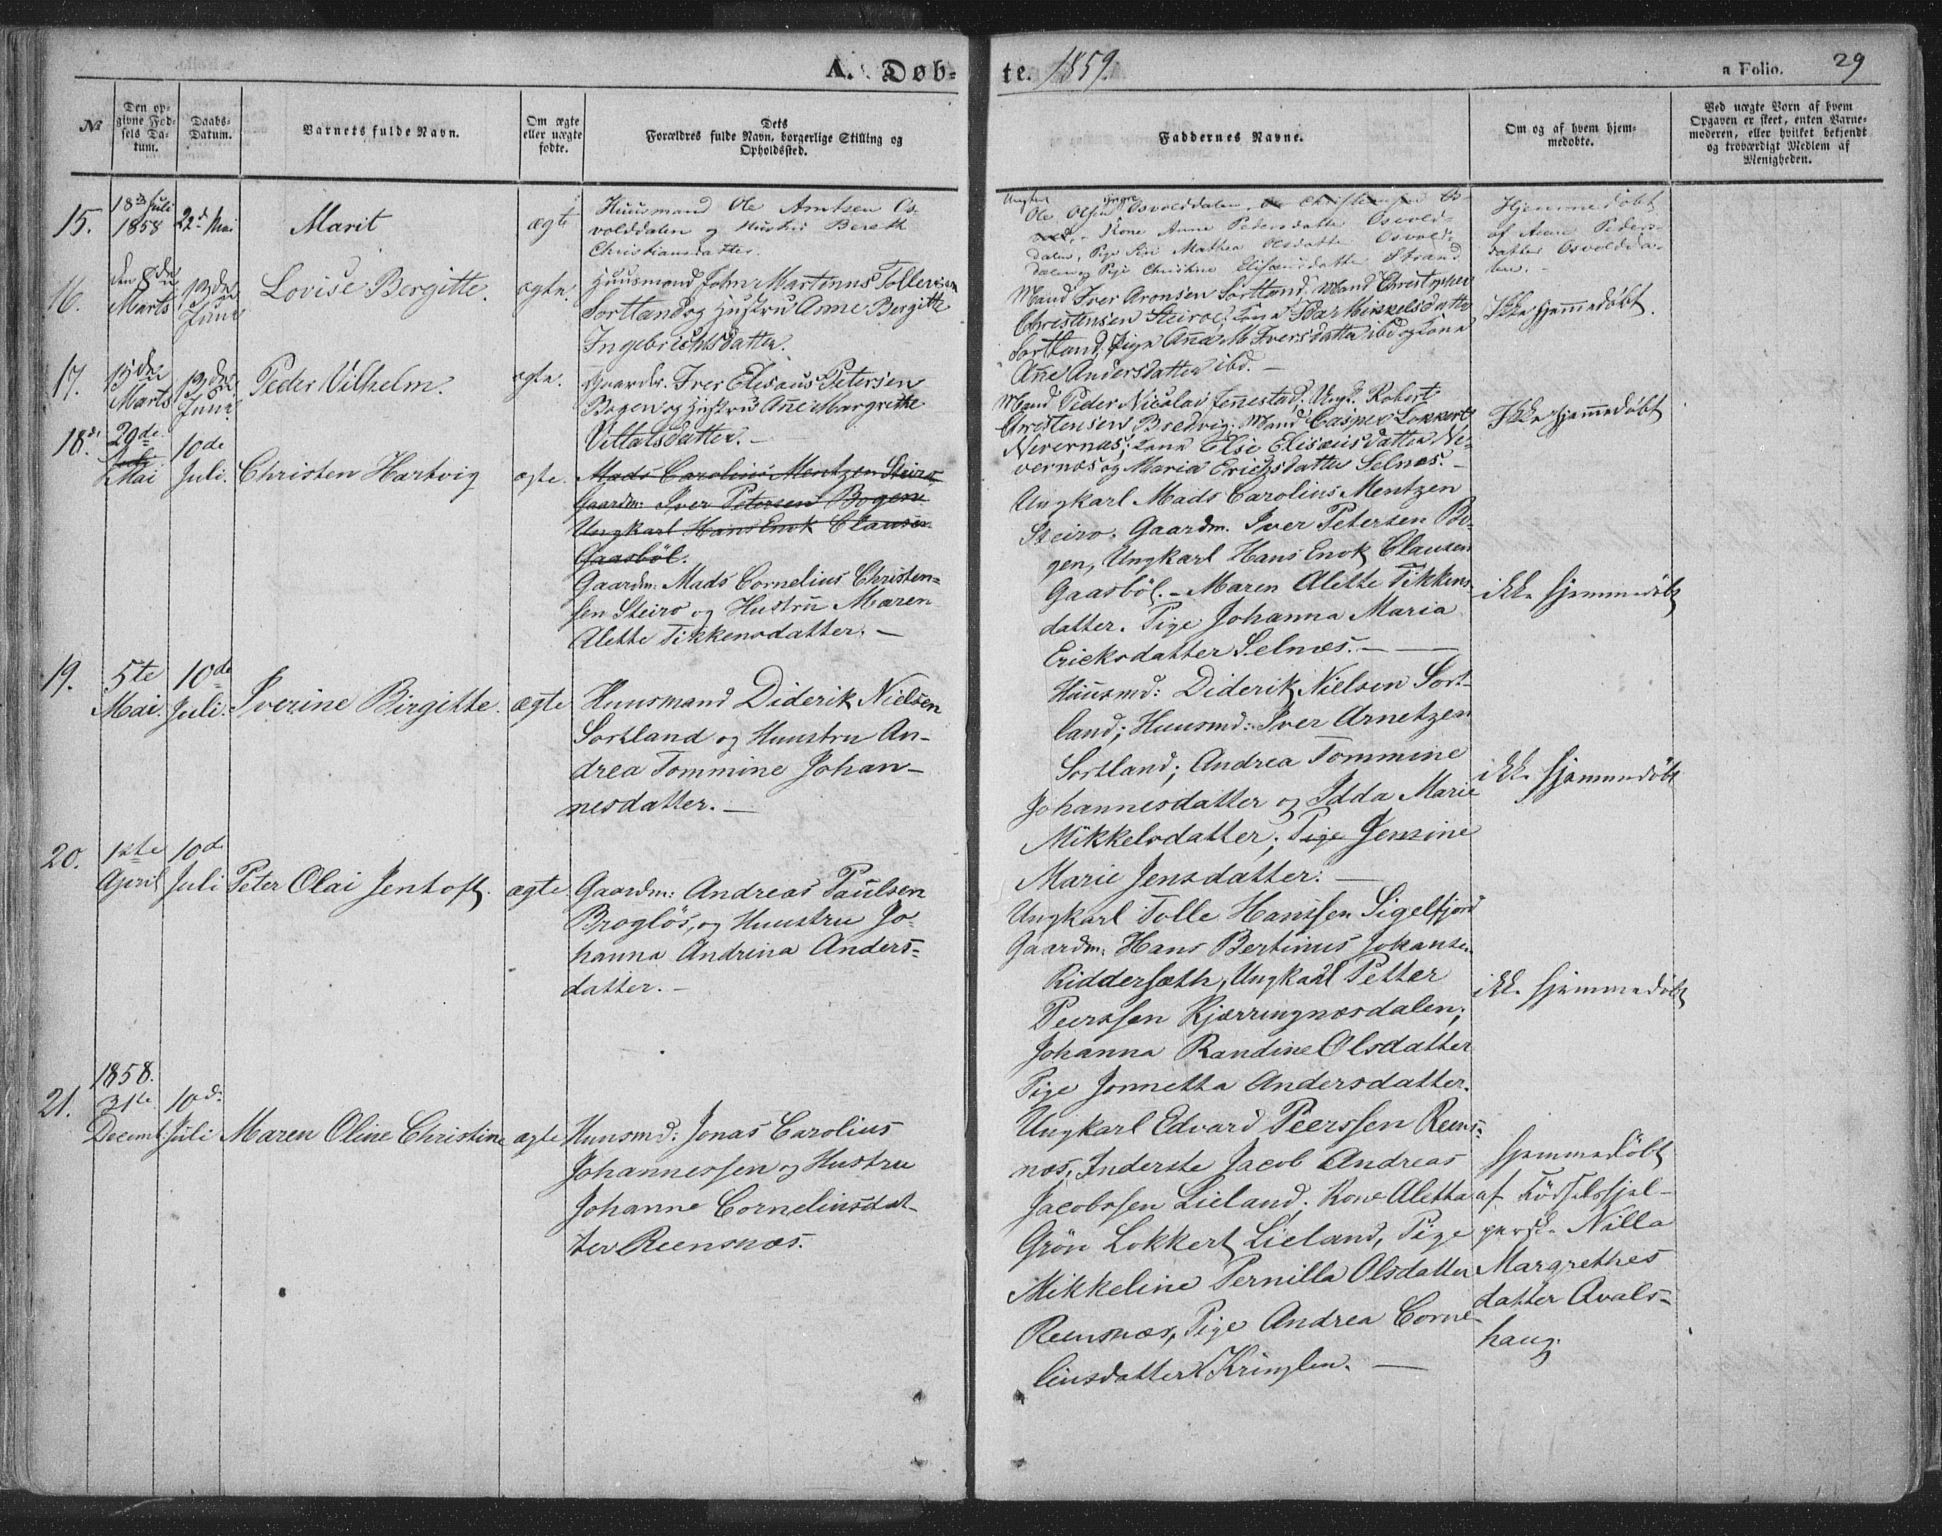 A. Døb-
te. 1859.
a Folio. 29
№
Den op-
givne Fød-
sels Da-
tum.
Daabs-
Datum.
Barnets fulde Navn.
Om ægte
eller uægte
fødte.
Dets
Forældres fulde Navn, borgerlige Stilling og
Opholdssted.
Faddernes Navne.
Om og af hvem hjem-
medøbte.
Ved uægte Børn af hvem
Opgaven er skeet, enten Barne-
moderen, eller hvilket bekjendt
og troværdigt Medlem af
Menigheden.
15.
18de Juli
1858
22de Mai
Marit
ægte
Huusmand Ole Arntsen Os-
volddalen og Hustru Bereth
Christiansdatter.
Ole Olsen Osvolddalen,
Kone Anne Pedersdatter Osvold-
dalen, Pige Mathea Olsdatter Osvold-
dalen og Pige Christine Eliseusdatter Strand
Hjemmedøbt
af Anne Peders-
datter Osvoldda-
len.
16.
den 8de
Marts
13de
Juni
Lovise Bergitte.
ægte.
Huusmand John Martinus Tollevsen
Sortland og Hustru Anne Bergitte
Ingebrichtsdatter.
Mand Iver Aronsen Sortland; Mand Christopher
Christensen Steiroe; Kona Mikkelsdatter
Sortland; Pige Ane M. Iversdatter ibd og Kona
Ane Andersdatter ibd. -
Ikke hjemmedøbt.
17.
15de
Marts
13de
Juni
Peder Vilhelm.
ægte.
Gaardbr. Iver Elisæus Petersen
Bogen og Hustru Ane Margrethe
Vittalsdatter. -
Mand Peder Nicolai Jennestad; Ungk. Robert
Christensen Bredvig; Mand Casper Lokkert
Nevernæs; Kona Else Elisæusdatter Ne-
vernæs og Maria Erichsdatter Selnæs. -
Ikke hjemmedøbt
18.
29de
Mai
10de
Juli.
Christen Hartvig
ægte.
Mads Carolius Mentzen Steiro,
Gaardm: Iver Petersen Bogen
Ungkarl Hans Enok Clausen
Gaasböl.
Gaardm: Mads Cornelius Christen-
sen Steiro og Hustru Maren
Alette Tikkensdatter. -
Ungkarl Mads Carolius Mentzen
Steiro. Gaardm. Iver Petersen Bo-
gen, Ungkarl Hans Enok Clausen
Gaasböl. - Maren Alette Tikkens-
datter. Pige Johanna Maria
Ericksdatter Selnæs. -
ikke hjemmedøbt
19.
5te
Mai.
10de
Juli.
Iverine Birgitte.
ægte
Huusmand Diderik Nielsen
Sortland og Huustru An-
drea Tommine Johan-
nesdatter. -
Huusmd: Diderik Nielsen Sort-
land; Huusmd: Iver Arnetzen
Sortland; Andrea Tommine
Johannesdatter og Idda Marie
Mikkelsdatter; Pige Jensine
Marie Jensdatter. -
ikke hjemmedøbt
20.
1ste
April
10de
Juli
Peter Olai Jentoft.
ægte
Gaardm: Andreas Paulsen
Brogløs, og Huustru Jo-
hanna Andrina Anders-
datter. -
Ungkarl Tolle Hanssen Sigelfjord
Gaardm. Hans Bertinus Johansen
Riddersæth, Ungkarl Petter
Peerssen Kjærringnæsdalen;
Johanna Randine Olsdatter
Pige Jonnetta Andersdatter.
ikke hjemmedøbt
21.
1858.
31te
Decemb.
10de
Juli
Maren Oline Christine
ægte
Huusmd: Jonas Carolius
Johannessen og Hustru
Johanne Corneliusdat-
ter Reensnæs.
Ungkarl Edvard Peerssen Reens-
næs, Inderste Jacob Andreas
Jacobssen Lieland; Kone Aletta
Grön Lokkert Lieland, Pige
Mikkeline Pernilla Olsdatter
Reensnæs, Pige Andrea Corne-
liusdatter Kringlen. -
hjemmedöbt
af Födselshjel-
persk. Nilla
Margrethes
datter Avals-
haug.